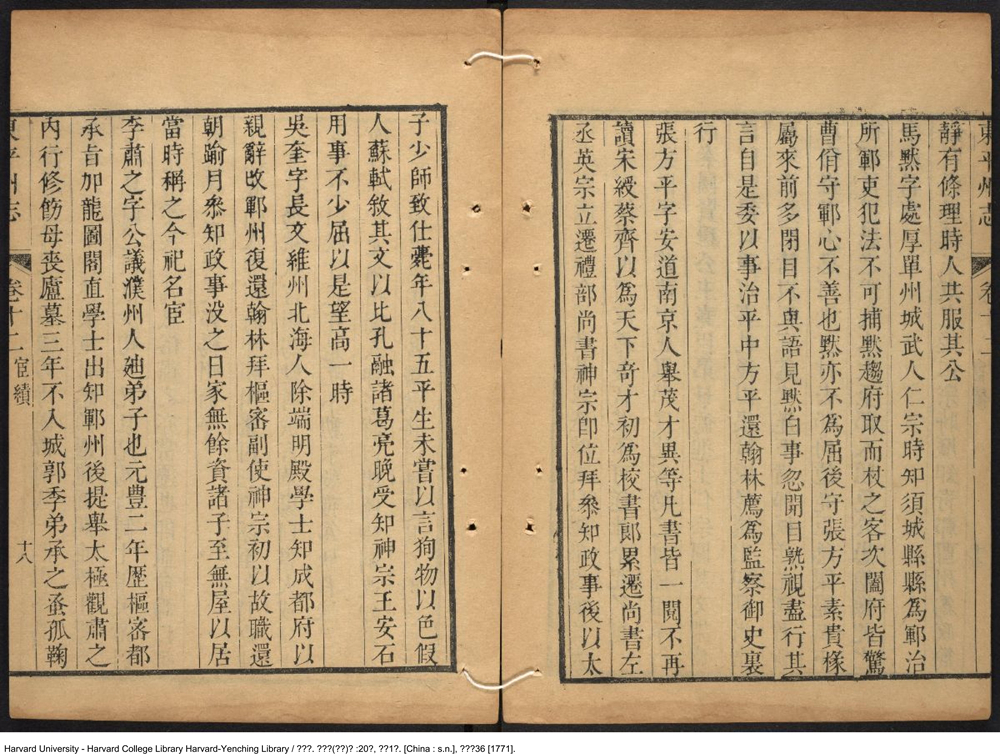 東平州志 卷十二
靜有條理時人共服其公
馬默字處厚單州城武人仁宗時知須城縣縣為鄆治
所鄆吏犯法不可捕默趨府取而杖之客次闔府皆驚
曹佾守鄆心不善也默亦不為屈後守張方平素貴掾
屬來前多閉目不與語見默白事忽開目熟視盡行其
言自是委以事治平中方平還翰林薦為監察御史裏
行
張方平字安道南京人舉茂才異等凡書皆一閱不再
讀宋綬蔡齊以為天下奇才初為校書郎累遷尚書左
丞英宗立遷禮部尚書神宗卽位拜叅知政事後以太
子少師致仕薨年八十五平生未嘗以言狥物以色假
人蘇軾敘其文以比孔融諸葛亮晚受知神宗王安石
用事不少屈以是望高一時
吳奎字長文維州北海人除端明殿學士知成都府以
親辭改鄆州復還翰林拜樞密副使神宗初以故職還
朝踰月叅知政事没之日家無餘資諸子至無屋以居
當時稱之今祀名宦
李肅之字公議濮州人廸弟子也元豊二年歴樞密都
承旨加龍圖閣直學士出知鄆州後提舉太極觀肅之
内行修飭母喪廬墓三年不入城郭季弟承之蚤孤鞠
東平州志 卷十二 宦績 十八
Harvard University - Harvard College Library Harvard-Yenching Library / ???. ???(??)? :20?, ??1?. [China : s.n.], ???36 [1771].